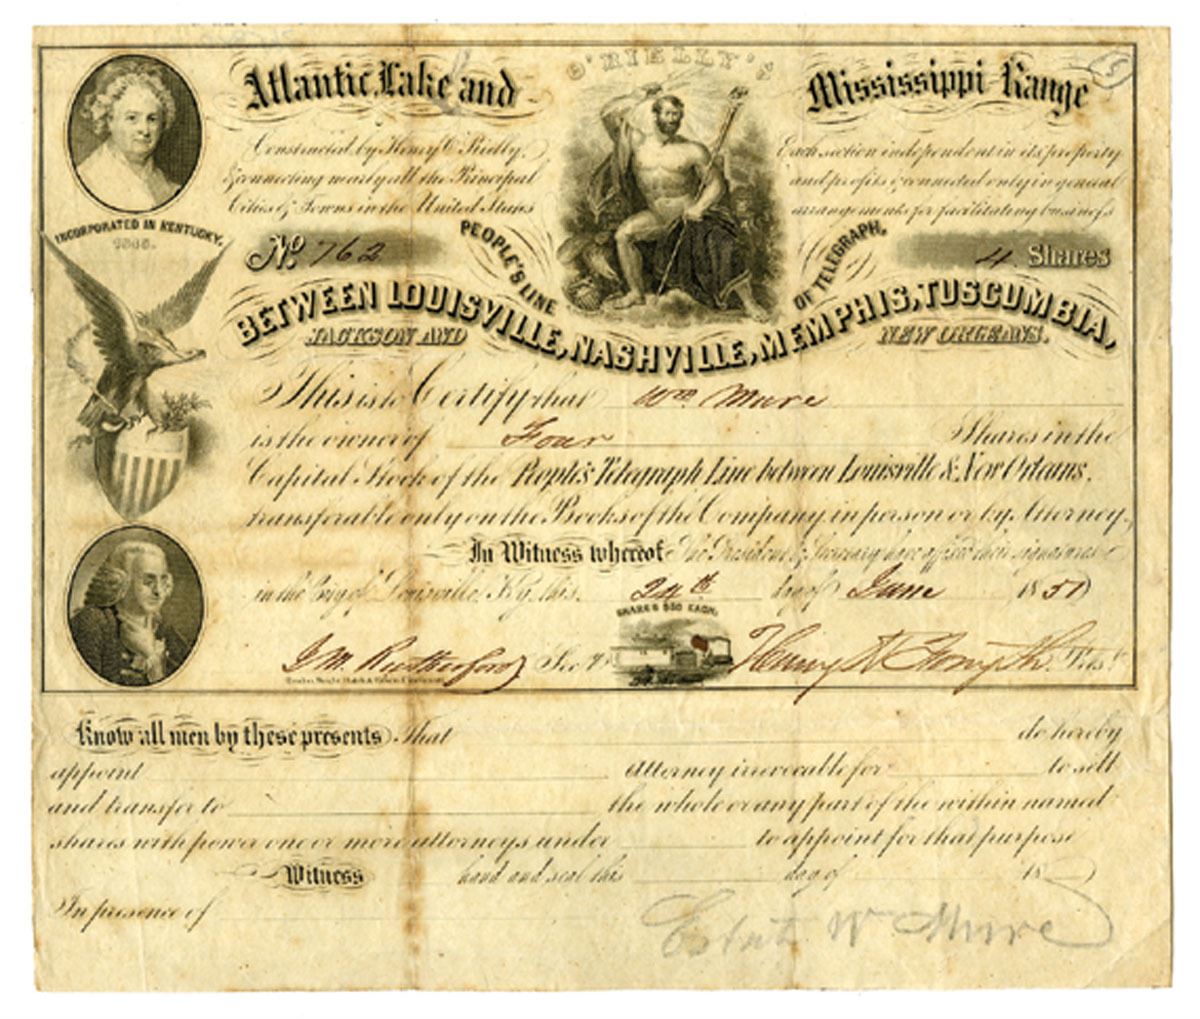 O'RIELLY'S
Atlantic, Lake and Mississippi Range
Constructed by Henry O'Rielly,
& connecting nearly all the Principal
Cities & Towns in the United States
Each section independent in its property
and profits & connected only in general
arrangements for facilitating business
INCORPORATED IN KENTUCKY,
No. 762
PEOPLE'S LINE OF TELEGRAPH,
4 Shares
BETWEEN LOUISVILLE, NASHVILLE, MEMPHIS, TUSCUMBIA,
JACKSON AND NEW ORLEANS.
This is to Certify that Wm Mure
is the owner of Four Shares in the
Capital Stock of the People's Telegraph Line between Louisville & New Orleans.
transferable only on the Books of the Company, in person or by Attorney,
In Witness whereof The President & Secretary have affixed their signatures
in the City of Louisville Ky. this 24th day of June 1851
SHARES $50 EACH.
J M Rutherford Secy Henry Presdt
Know all men by these presents That do hereby
appoint Attorney irrevocable for to sell
and transfer to the whole or any part of the within named
shares with power one or more attorneys under to appoint for that purpose
Witness hand and seal this day of 18
In presence of
Estat Wm Mure